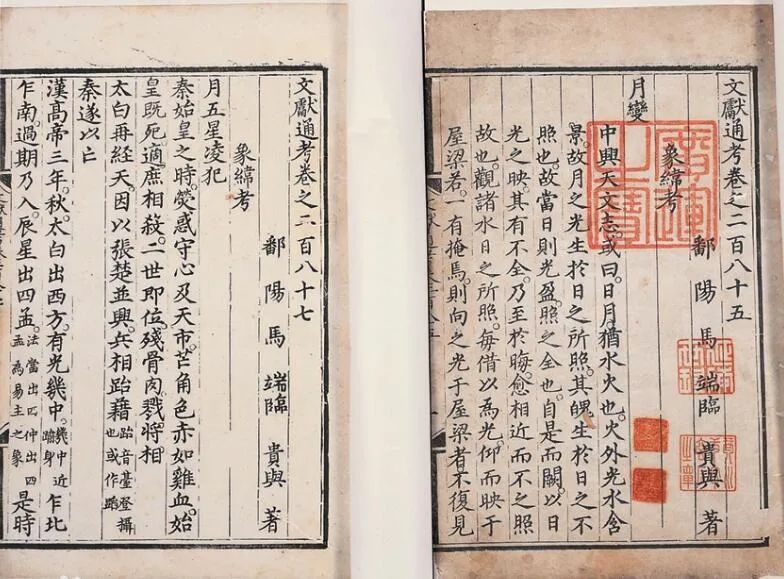 文獻通考卷之二百八十五
鄱陽馬端臨 貴與 著
象緯考
月變
中興天文志。或曰。日月猶水火也。火外光水含
景。故月之光生於日之所照。其魄生於日之不
照也。故當日則光盈。照之全也。自是而闕。以日
光之映。其有不全。乃至於晦。愈相近而不之照
故也。觀諸水日之所照。每借以爲光。仰而映于
屋梁。若一有掩焉。則向之光于屋梁者不復見
文獻通考卷之二百八十七
鄱陽馬端臨 貴與 著
象緯考
月五星凌犯
秦始皇之時。熒惑守心及天市。芒角色赤如雞血。始
皇既死。適庶相殺。二世即位。殘骨肉。戮將相
太白再經天。因以張楚並興。兵相跆藉 跆音臺登攝也或作蹈
秦遂以亡
漢高帝三年。秋。太白出西方。有光幾中。幾中近踰身 乍北
乍南。過期乃入。辰星出四孟。法當出四仲出四孟為易主之象 是時